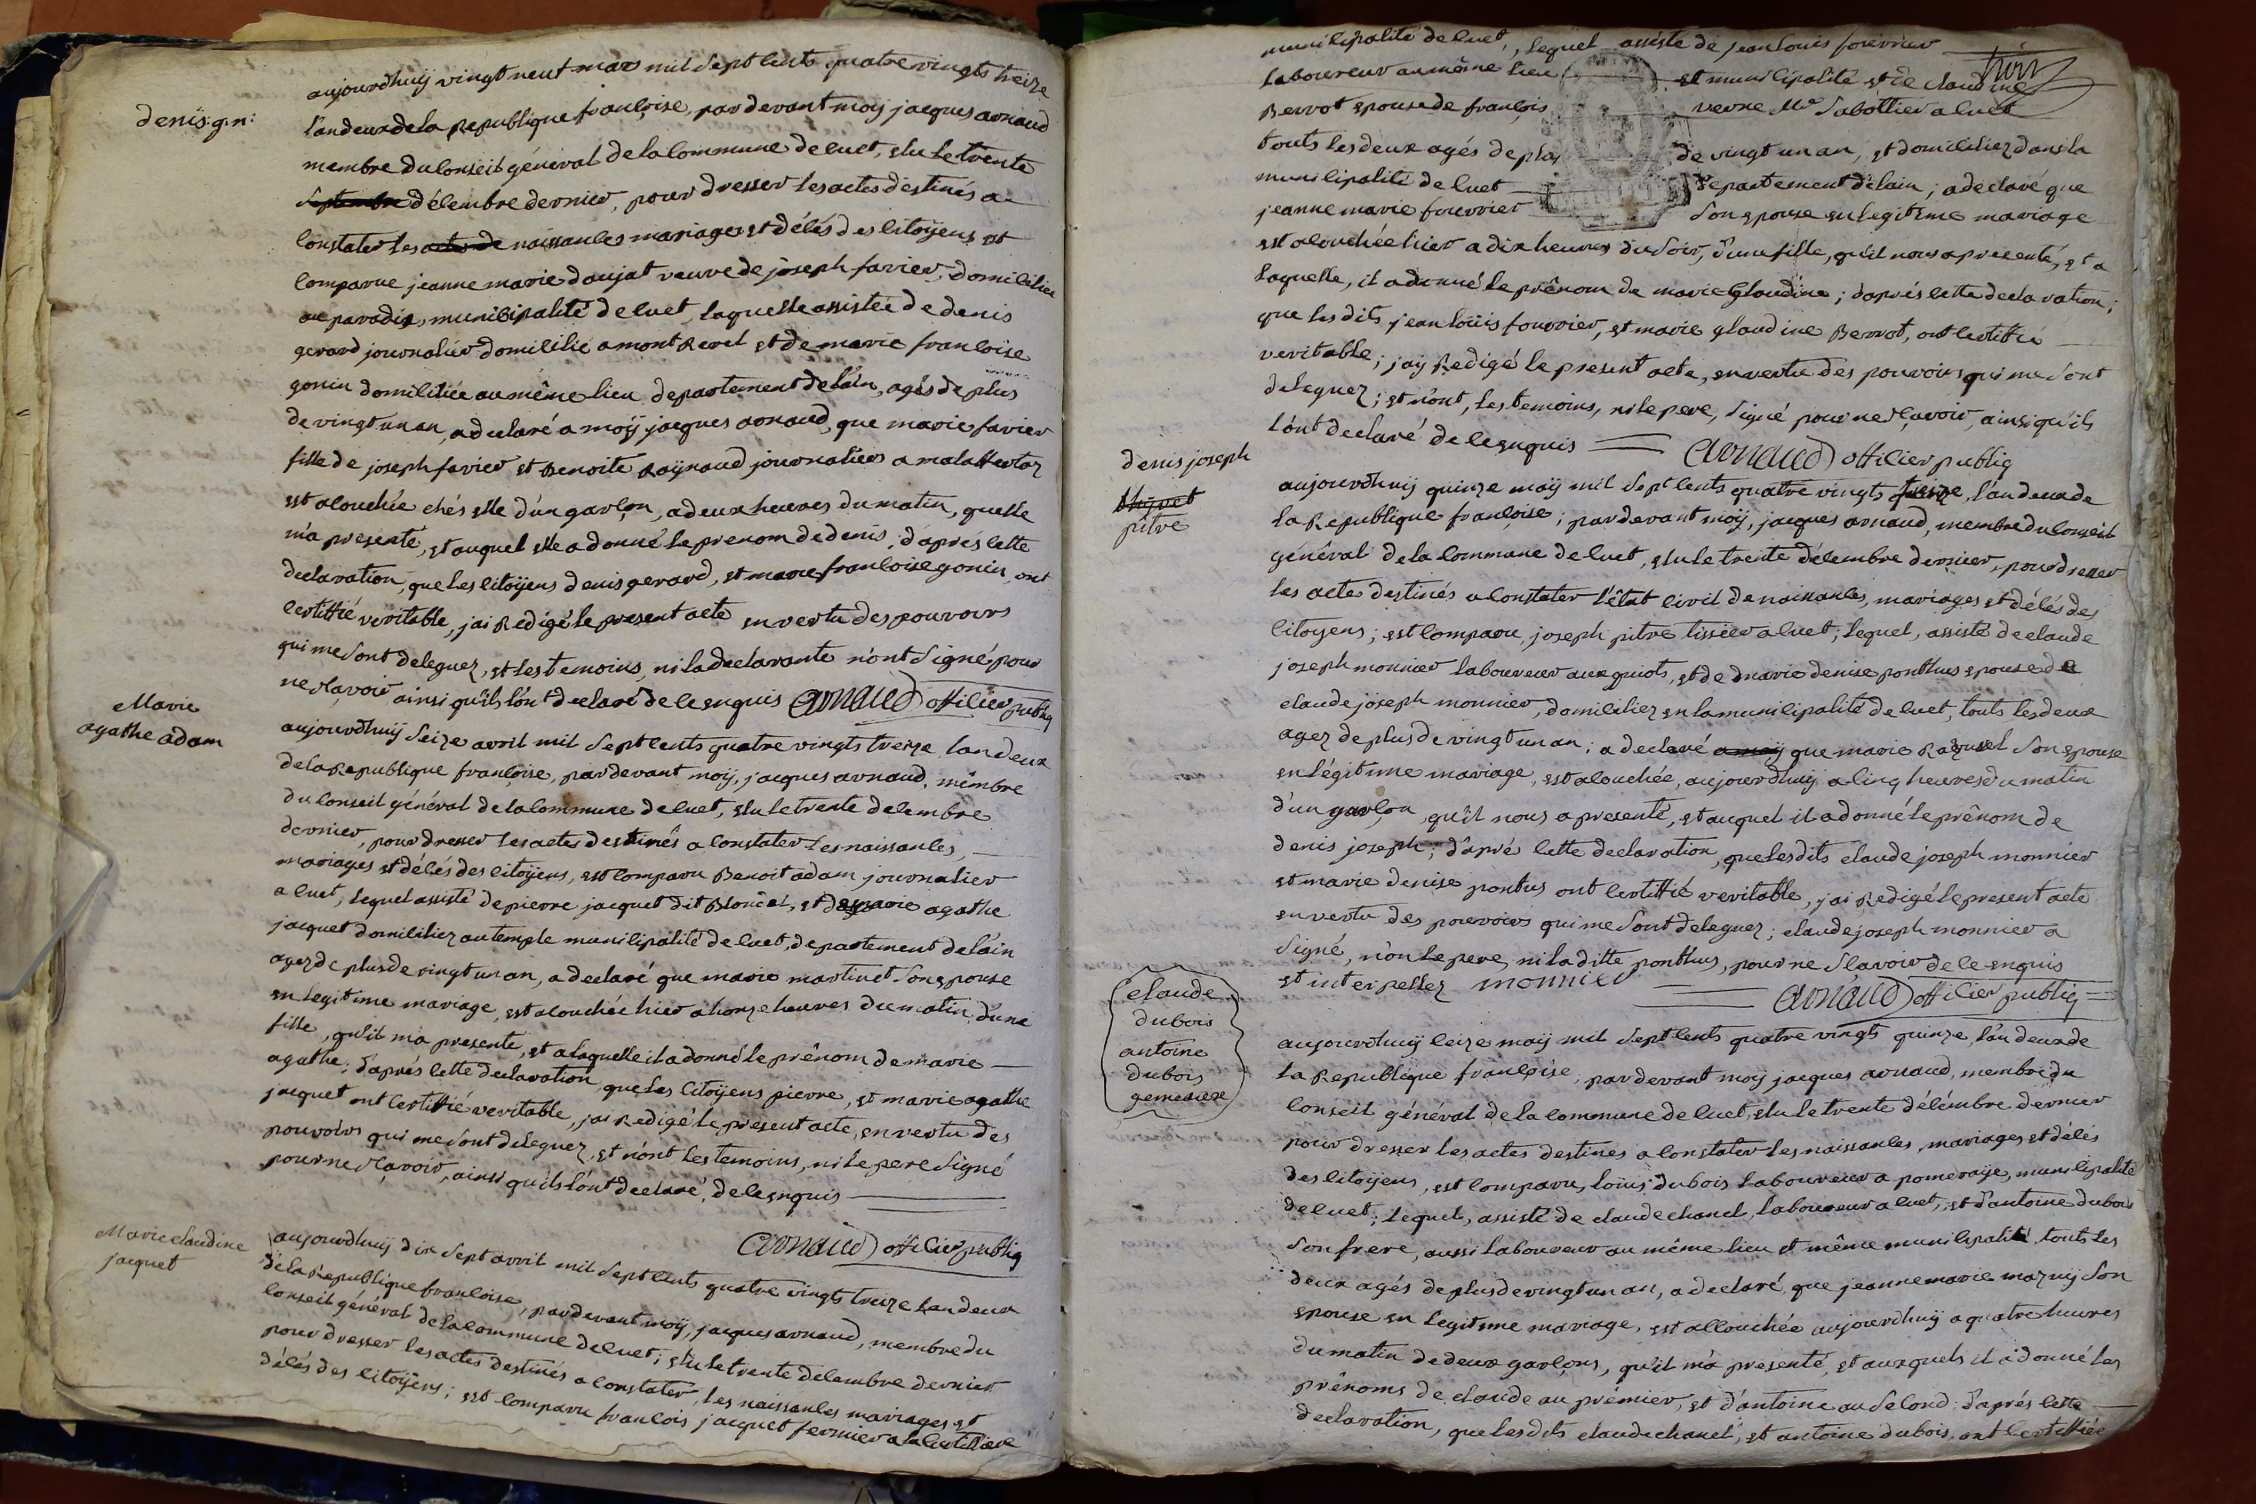 denis: g.n:
aujourdhuij vingt neuf mars mil sept cents quatre vingts treize
l'an deux de la Republique françoise, par devant moy jacques arnaud
membre du conseil général de la commune de cuet, elu le trente
septembre décembre dernier, pour dresser les actes destinés a
constater les actes de naissances mariages et décés des citoÿens est
comparue jeanne marie daujat veuve de joseph favier, domiciliée
au paradis, municipalité de cuet, laquelle assistée de denis
gerard journalier domicilié a mont Revel et de marie françoise
gonin domiciliée au même lieu departement de l'ain, agés de plus
de vingt un an, a declaré a moÿ jacques arnaud, que marie favier
fille de joseph favier et Benoite Raÿnaud journaliers a
est acouchée chés elle d'un garçon, a deux heures du matin, quelle
m'a presenté, et auquel elle a donné le prenom de denis, d'apres cette
declaration, que les citoÿens denis gerard, et marie françoise gonin ont
certiffié veritable, j'ai Redigé le present acte en vertu des pouvoirs
qui me sont deleguez, et les temoins, ni la declarante n'ont signé pour
ne sçavoir ainsi qu'ils l'ont declaré de ce enquis Arnaud officier publiq
Marie
agathe adam
aujourdhuij seize avril mil sept cents quatre vingts treize l'an deux
de la Republique françoise, par devant moÿ, jacques arnaud, mêmbre
du conseil général de la commune de cuet, elu le trente decembre
dernier, pour dresser les actes destinés a constater les naissances,
mariages et décés des citoÿens, est comparu Benoit adam journalier
a cuet, lequel assisté de pierre jacquet dit et de marie agathe
jacquet domiciliez au temple municipalité de cuet, departement de l'ain
agez de plus de vingt un an, a declaré que marie martinet son epouse
en legitime mariage, est acouchée hier a honze heures du matin d'une
fille, qu'il m'a presenté, et a laquelle il a donné le prênom de marie
agathe; d'aprés cette declaration que les citoÿens pierre, et marie agathe
jacquet ont certiffié veritable, j'ai Redigé le present acte, en vertu des
pouvoirs qui me sont deleguez, et n'ont les temoins, ni le pere signé
pour ne sçavoir, ainsi qu'ils l'ont declaré, de ce enquis
Arnaud officier publiq
Marie claudine
jacquet
aujourdhuij dix sept avril mil sept cents quatre vingts treize l'an deux
de la Republique françoise, par devant moÿ, jacques arnaud, membre du
conseil général de la commune de cuet; elu le trente decembre dernier
pour dresser les actes destinés a constater les naissances mariages et
décés des citoÿens; est comparu françois jacquet fermier a
municipalité de cuet, lequel assisté de jean louis fouvrier
laboureur au même lieu et municipalité et de claudine
Berrot epouse de françois verne Me sabottier a cuet
touts les deux agés de plus de vingt un an, et domiciliez dans la
municipalité de cuet departement de l'ain; a declaré que
jeanne marie fouvrier son epouse en legitime mariage
est acouchée hier a dix heures du soir, d'une fille, qu'il nous a presenté, et a
laquelle, il a donné le prênom de marie Claudine; d'aprés cette declaration;
que les dits jean loüis fouvrier, et marie glaudine Berrot, ont certiffié
veritable; j'aÿ Redigé le present acte, en vertu des pouvoirs qui me sont
deleguez; et n'ont, les temoins, ni le pere, signé pour ne sçavoir, ainsi qu'ils
l'ont declaré de ce enquis Arnaud officier publiq
denis joseph
pitre
aujourdhuij quinze maÿ mil sept cents quatre vingts treize, l'an deux de
la Republique françoise; par devant moÿ, jacques arnaud, membre du conseil
général de la commune de cuet, elu le trente décembre dernier, pour dresser
les actes destinés a constater l'état civil de naissances, mariages et décés des
citoyens; est comparu joseph pitre tissier a cuet; lequel, assisté de claude
joseph monnier laboureur aux guiots, et de marie denise ponthus epouse de
claude joseph monnier, domiciliez en la municipalité de cuet, touts les deux
agez de plus de vingt un an; a declaré a moÿ que marie Razurel son epouse
en légitime mariage, est acouchée, aujourdhuij a cinq heures du matin
d'un garçon, qu'il nous a presenté, et auquel il a donné le prênom de
denis joseph; d'aprés cette declaration, que les dits claude joseph monnier
et marie denise pontus ont certiffié veritable, j'ai Redigé le present acte
en vertu des pouvoirs qui me sont deleguez; claude joseph monnier a
signé, non le pere, ni la ditte ponthus, pour ne sçavoir de ce enquis
et interpellez monnier Arnaud officier publiq
claude
dubois
antoine
dubois
aujourdhuij seize maÿ mil sept cents quatre vingts quinze, l'an deux de
la Republique françoise, par devant moy jacques arnaud, membre du
conseil général de la commune de cuet, elu le trente décémbre dernier
pour dresser les actes destinés a constater les naissances, mariages et décés
des citoÿens, est comparu, loüis dubois laboureur a pomeraÿe, municipalité
de cuet; lequel, assisté de claude chanel, laboureur a cuet, et d'antoine dubois
son frere, aussi laboureur au même lieu et même municipalité, touts les
deux agés de plus de vingt un an, a declaré, que jeanne marie mazuij son
epouse en legitime mariage, est accouchée aujourdhuij a quatre heures
du matin de deux garçons, qu'il m'a presenté, et auxquels il a donné les
prênoms de claude au prémier, et d'antoine au second: d'aprés cette
declaration, que les dits claude chanel, et antoine dubois, ont certiffiée